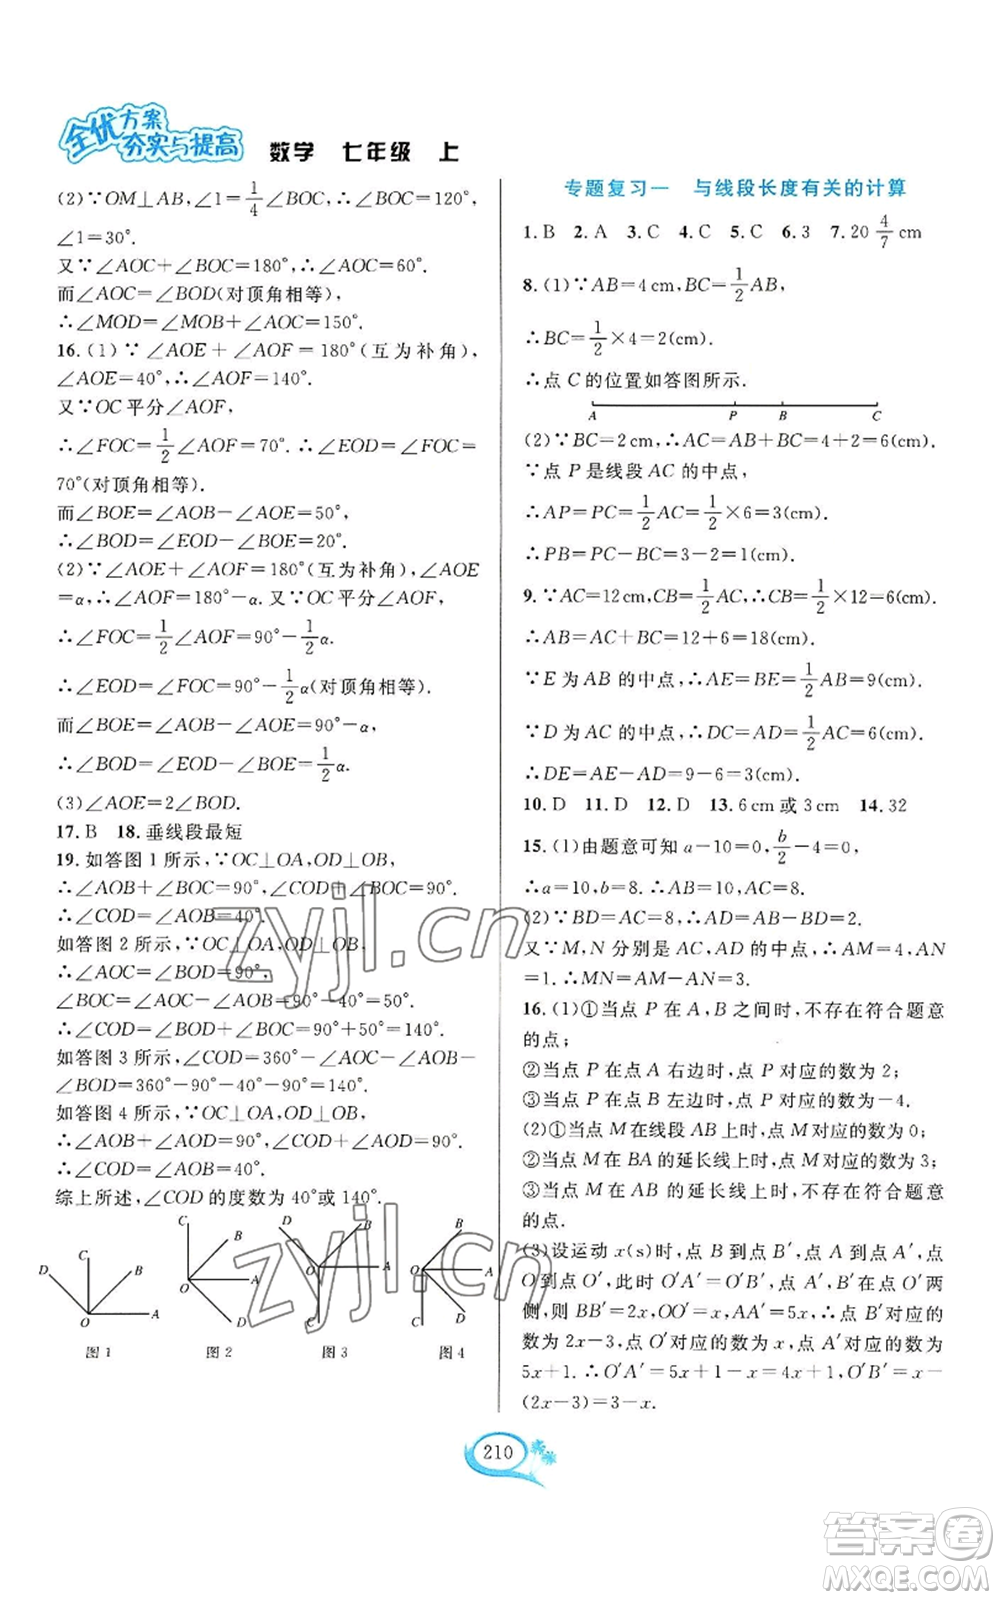 全优方案
夯实与提高 数学 七年级 上
(2)∵OM⊥AB,∠1=1/4∠BOC,∠BOC=120°,
∠1=30°.
又∵∠AOC+∠BOC=180°,∴∠AOC=60°.
而∠AOC=∠BOD(对顶角相等),
∴∠MOD=∠MOB+∠AOC=150°.
16.(1)∵∠AOE+∠AOF=180°(互为补角),
∠AOE=40°,∴∠AOF=140°.
又∵OC平分∠AOF,
∴∠FOC=1/2∠AOF=70°.∴∠EOD=∠FOC=
70°(对顶角相等).
而∠BOE=∠AOB-∠AOE=50°,
∴∠BOD=∠EOD-∠BOE=20°.
(2)∵∠AOE+∠AOF=180°(互为补角),∠AOE
=α,∴∠AOF=180°-α.又∵OC平分∠AOF,
∴∠FOC=1/2∠AOF=90°-1/2α.
∴∠EOD=∠FOC=90°-1/2α(对顶角相等).
而∠BOE=∠AOB-∠AOE=90°-α,
∴∠BOD=∠EOD-∠BOE=1/2α.
(3)∠AOE=2∠BOD.
17.B 18.垂线段最短
19.如答图1所示,∵OC⊥OA,OD⊥OB,
∴∠AOB+∠BOC=90°,∠COD+∠BOC=90°.
∴∠COD=∠AOB=40°.
如答图2所示,∵OC⊥OA,OD⊥OB,
∴∠AOC=∠BOD=90°.
∠BOC=∠AOC-∠AOB=90°-40°=50°.
∴∠COD=∠BOD+∠BOC=90°+50°=140°.
如答图3所示,∠COD=360°-∠AOC-∠AOB-
∠BOD=360°-90°-40°-90°=140°.
如答图4所示,∵OC⊥OA,OD⊥OB,
∴∠AOB+∠AOD=90°,∠COD+∠AOD=90°.
∴∠COD=∠AOB=40°.
综上所述,∠COD的度数为40°或140°.
D C B O A
图1
C B O A D
图2
D B O A C
图3
B O A C D
图4
专题复习一 与线段长度有关的计算
1.B 2.A 3.C 4.C 5.C 6.3 7.20 4/7 cm
8.(1)∵AB=4cm,BC=1/2AB,
∴BC=1/2×4=2(cm).
∴点C的位置如答图所示.
A P B C
(2)∵BC=2cm,∴AC=AB+BC=4+2=6(cm).
∵点P是线段AC的中点,
∴AP=PC=1/2AC=1/2×6=3(cm).
∴PB=PC-BC=3-2=1(cm).
9.∵AC=12cm,CB=1/2AC,∴BC=1/2×12=6(cm).
∴AB=AC+BC=12+6=18(cm).
∵E为AB的中点,∴AE=BE=1/2AB=9(cm).
∵D为AC的中点,∴DC=AD=1/2AC=6(cm).
∴DE=AE-AD=9-6=3(cm).
10.D 11.D 12.D 13.6cm或3cm 14.32
15.(1)由题意可知a-10=0,b/2-4=0,
∴a=10,b=8.∴AB=10,AC=8.
(2)∵BD=AC=8,∴AD=AB-BD=2.
又∵M,N分别是AC,AD的中点,∴AM=4,AN
=1.∴MN=AM-AN=3.
16.(1)①当点P在A,B之间时,不存在符合题意
的点;
②当点P在点A右边时,点P对应的数为2;
③当点P在点B左边时,点P对应的数为-4.
(2)①当点M在线段AB上时,点M对应的数为0;
②当点M在BA的延长线上时,点M对应的数为3;
③当点M在AB的延长线上时,不存在符合题意
的点.
(3)设运动x(s)时,点B到点B′,点A到点A′,点
O到点O′,此时O′A′=O′B′,点A′,B′在点O′两
侧,则BB′=2x,OO′=x,AA′=5x,∴点B′对应的
数为2x-3,点O′对应的数为x,点A′对应的数为
5x+1.∴O′A′=5x+1-x=4x+1,O′B′=x-
(2x-3)=3-x.
210
zyjl.cn
zyjl.cn
答案圈
MXQE.COM